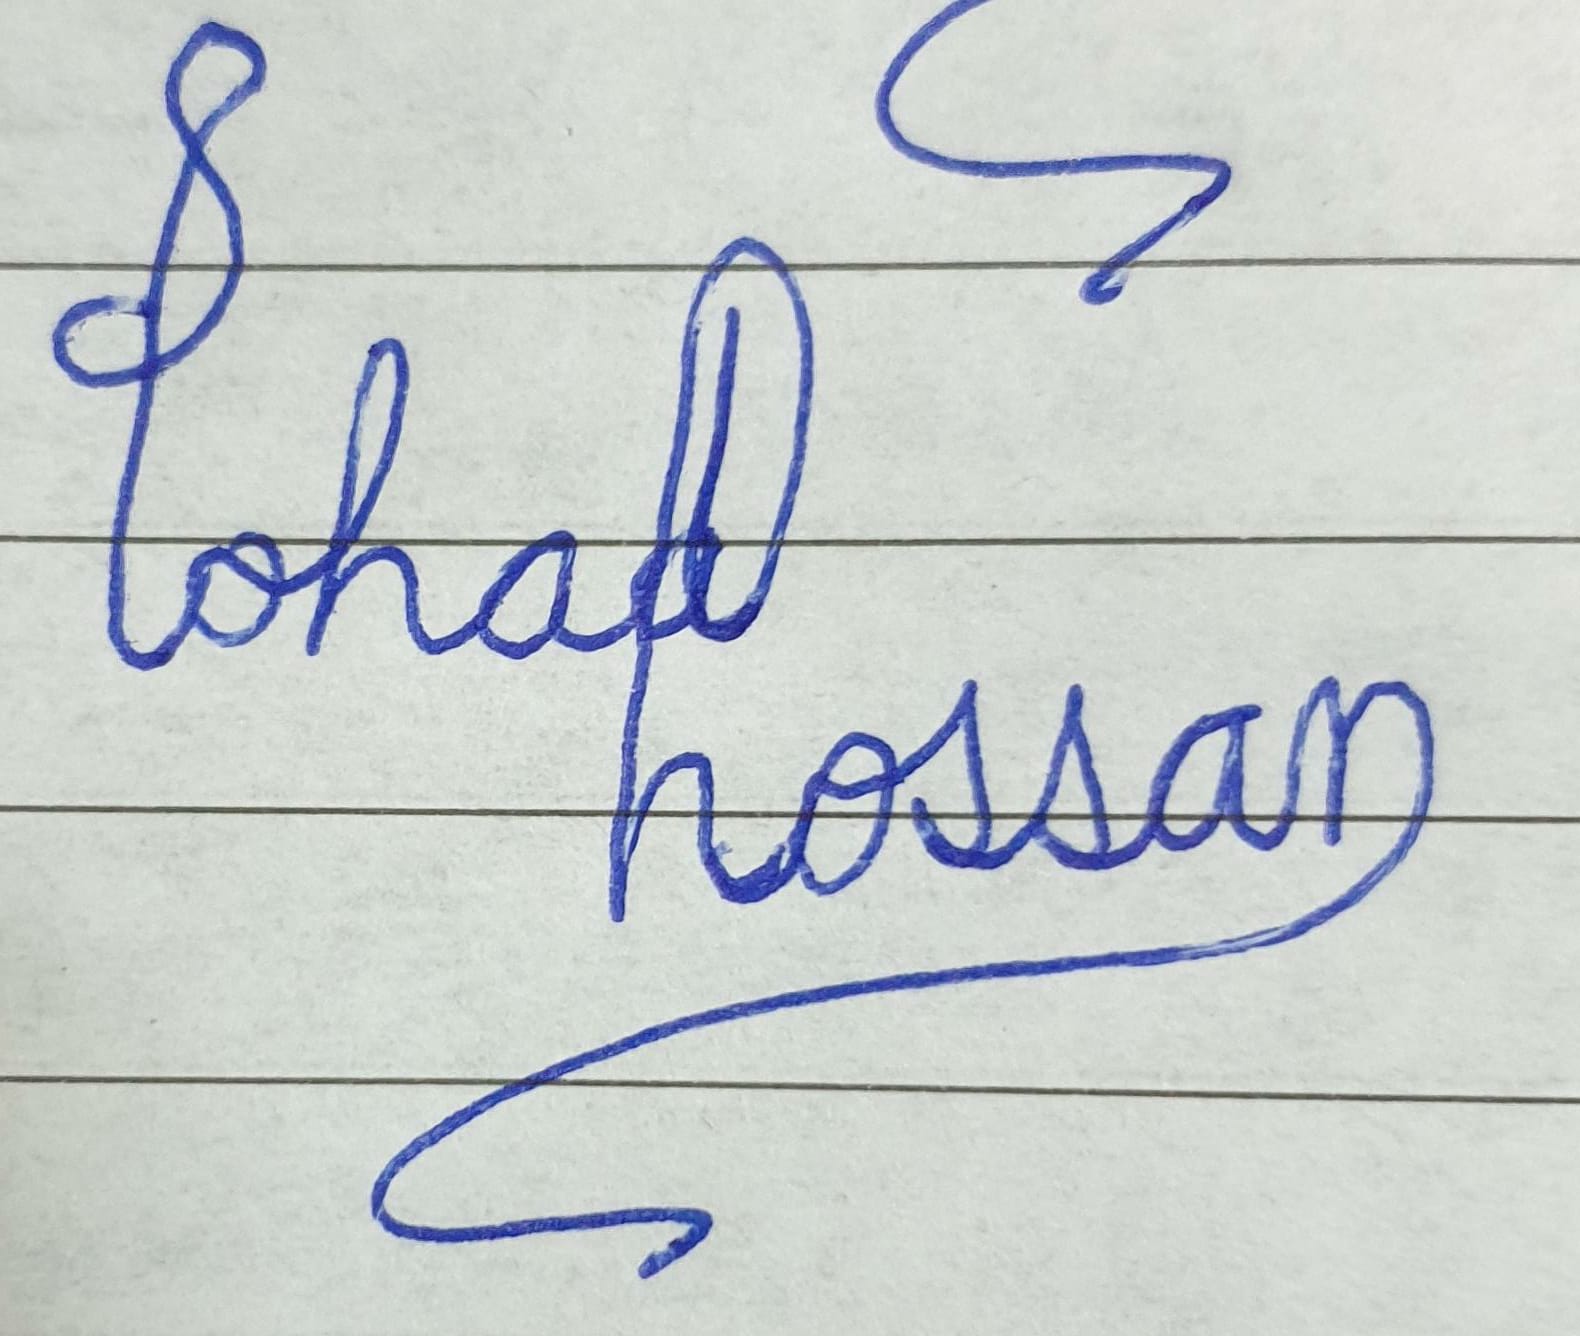 Sohad
hossan